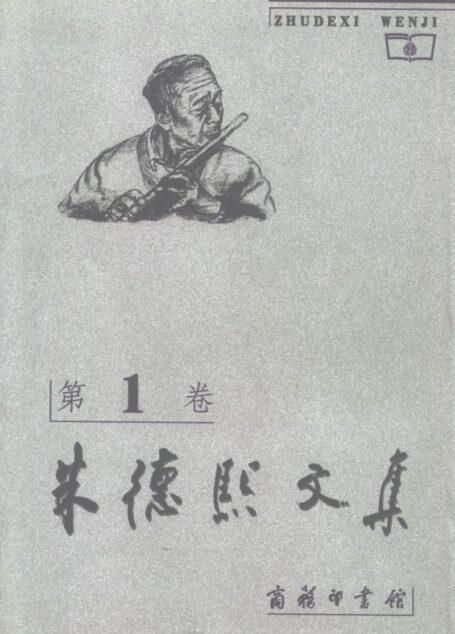 ZHUDEXI WENJI
第1卷
朱德熙文集
商務印書館